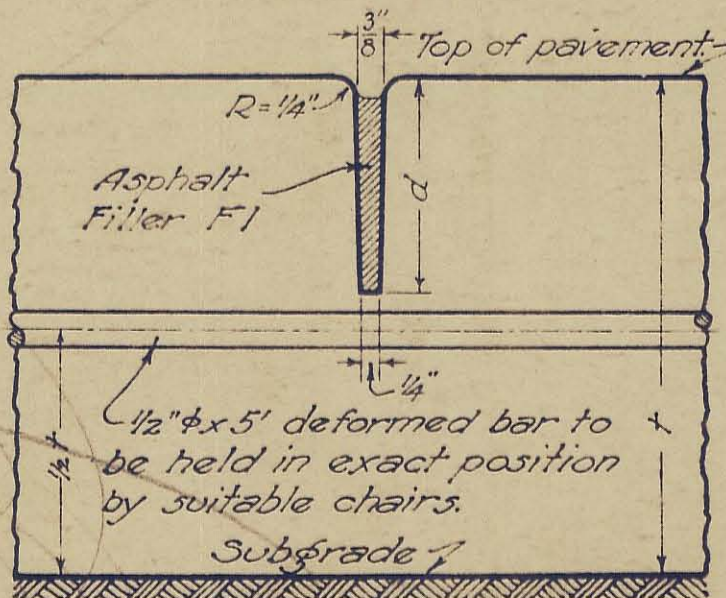 3/8"
Top of pavement
R=1/4"
Asphalt
Filler F1
d
1/4"
1/2"ϕx5' deformed bar to
be held in exact position
by suitable chairs.
1/2 t
t
Subgrade